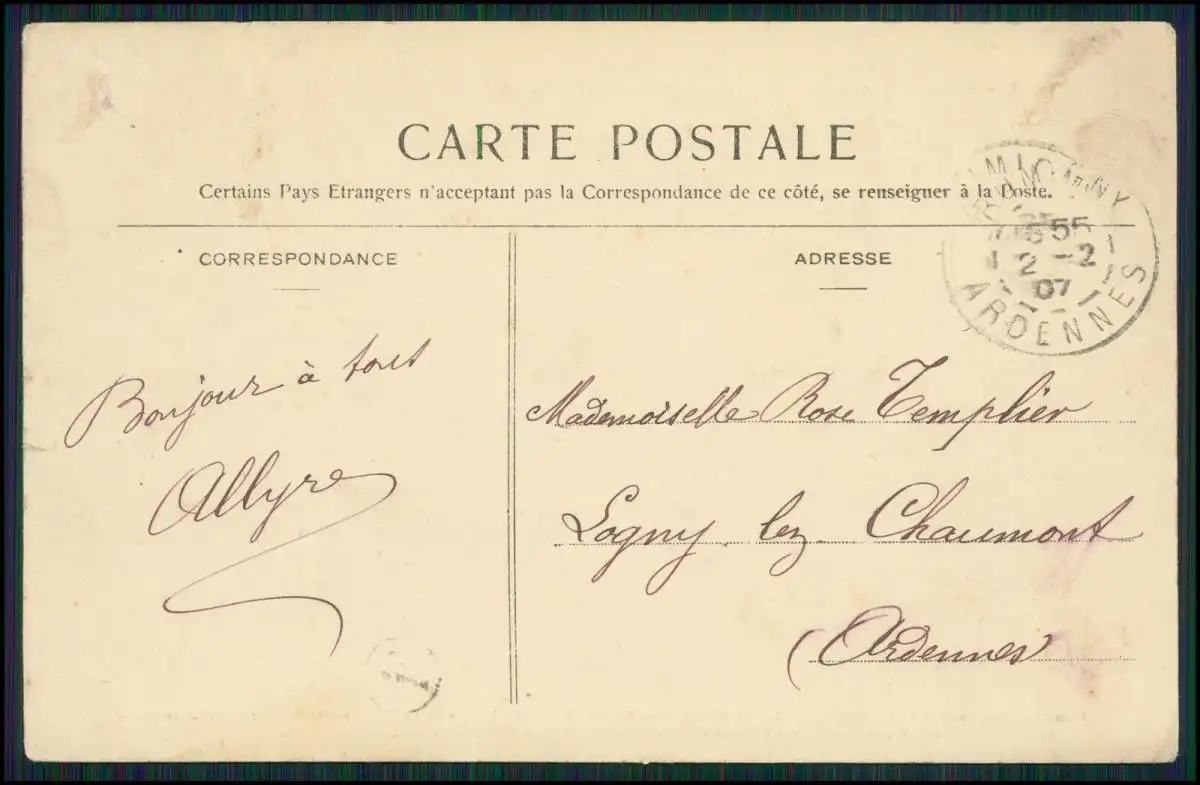 CARTE POSTALE
Certains Pays Etrangers n'acceptant pas la Correspondance de ce côté, se renseigner à la Poste.
CORRESPONDANCE
ADRESSE
55
2 -2
07
ARDENNES
Bonjour à tous
Allyre
Mademoiselle Rose Templier
Logny lez Chaumont
(Ardennes